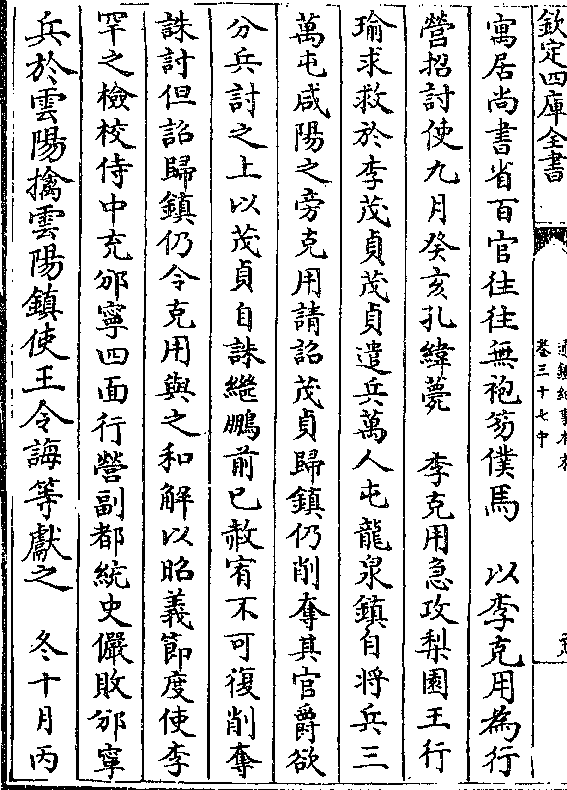 欽定四庫全書
通鑑紀事本末
卷三十七中
寓居尚書省百官往往無袍笏僕馬　以李克用為行
營招討使九月癸亥孔緯薨　李克用急攻梨園王行
瑜求救於李茂貞茂貞遣兵萬人屯龍泉鎮自將兵三
萬屯咸陽之旁克用請詔茂貞歸鎮仍削奪其官爵欲
分兵討之上以茂貞自誅繼鵬前已赦宥不可復削奪
誅討但詔歸鎮仍令克用與之和解以昭義節度使李
罕之檢校侍中充邠寧四面行營副都統史儼敗邠寧
兵於雲陽擒雲陽鎮使王令誨等獻之　冬十月丙